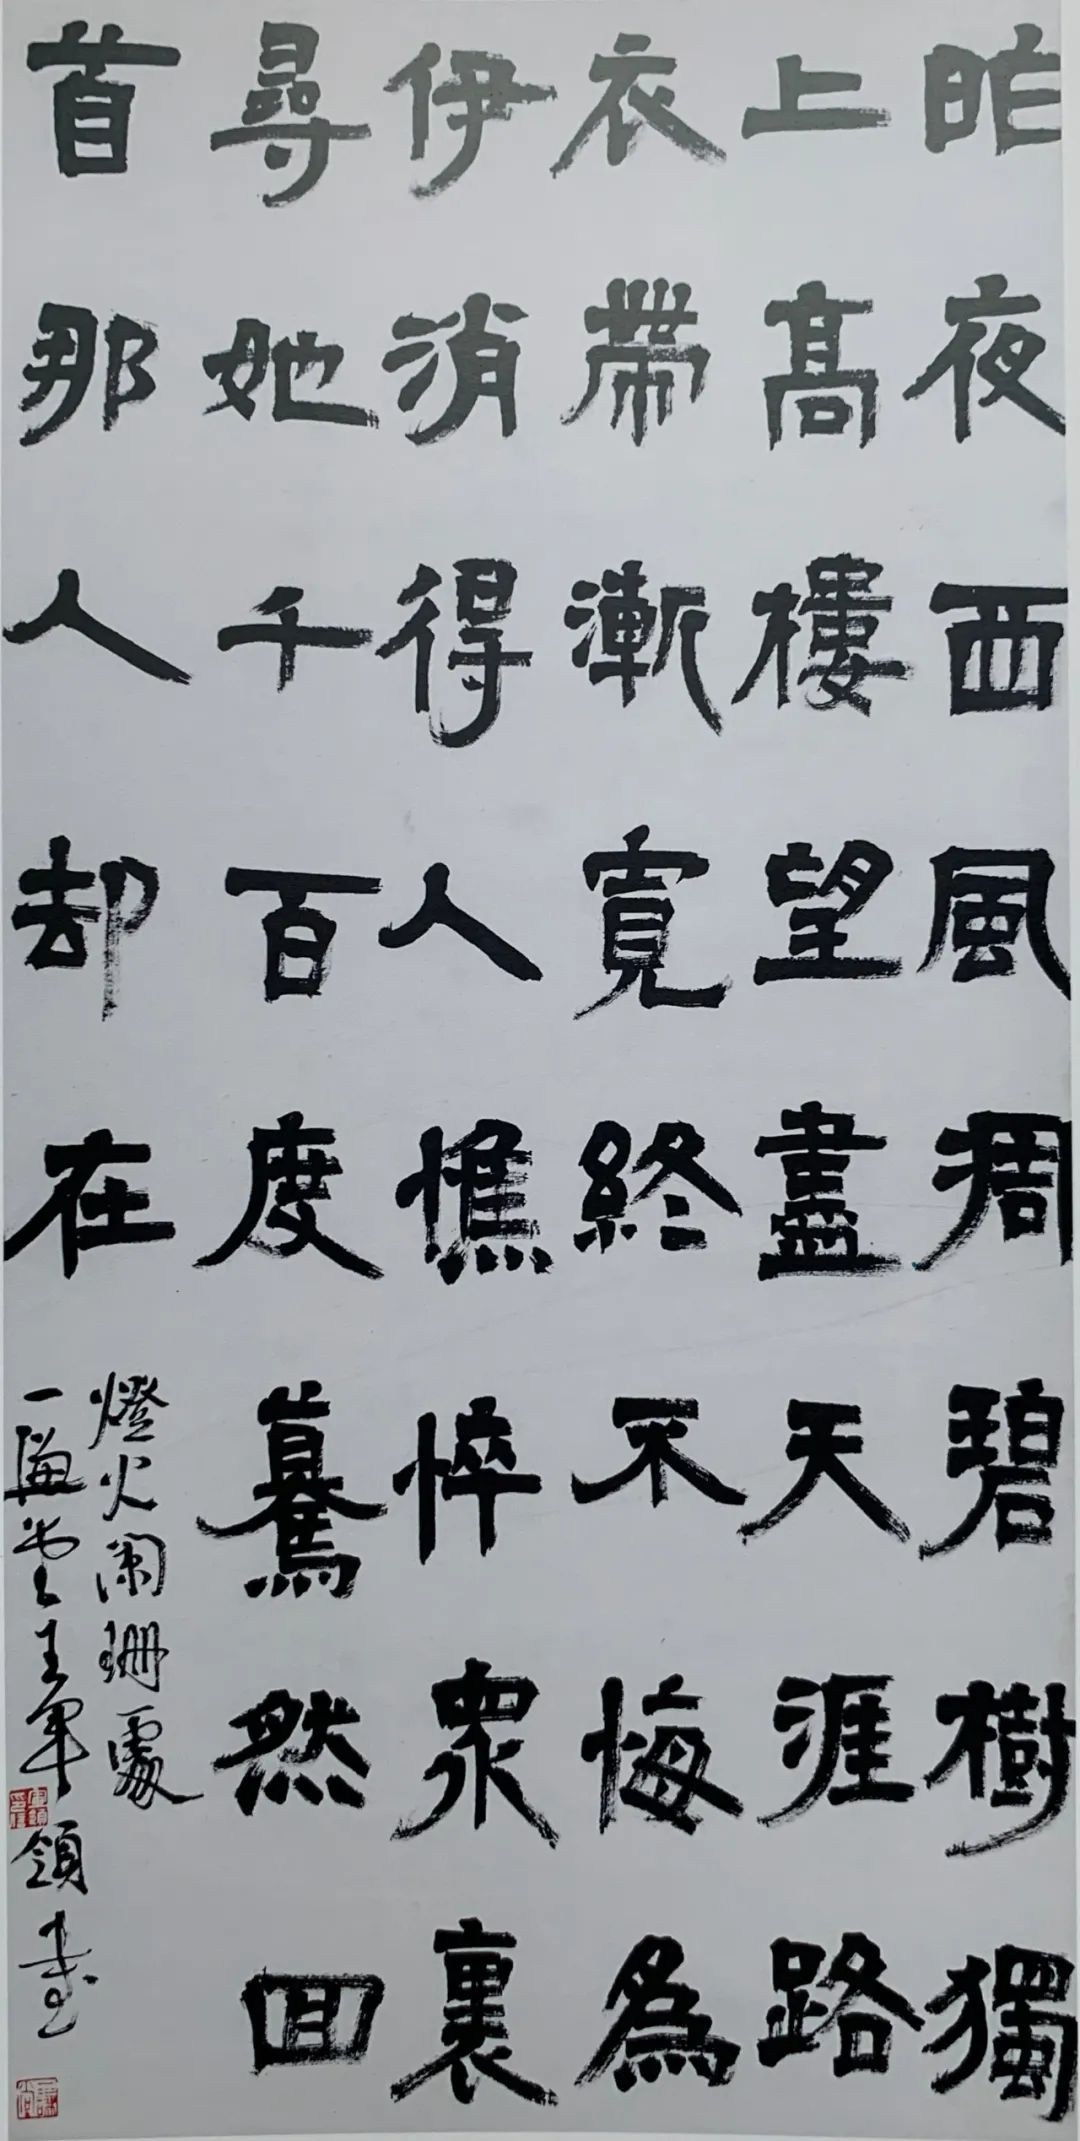 昨夜西風凋碧樹獨
上高樓望盡天涯路
衣帶漸寬終不悔為
伊消得人憔悴衆裏
尋她千百度驀然回
首那人却在
燈火闌珊處
王軍領書